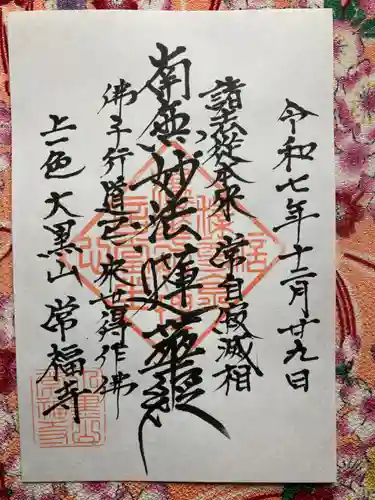 令和七年十二月廿九日
諸法從本来 常自寂滅相
南無妙法蓮華経
佛子行道已 来世得作佛
上一色 大黒山 常福寺